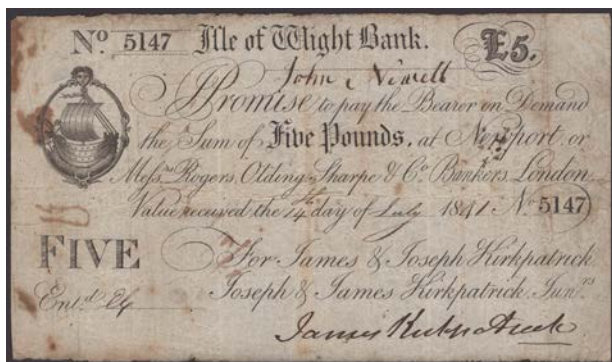 No 5147 Isle of Wight Bank. £5.
John Newell
I Promise to pay the Bearer on Demand
the Sum of Five Pounds, at Newport or
Messrs Rogers, Olding Sharpe & Co. Bankers, London.
Value received the 14 day of July 1841 No 5147
FIVE For James & Joseph Kirkpatrick
Entd Joseph & James Kirkpatrick Junrs
James Kirkpatrick